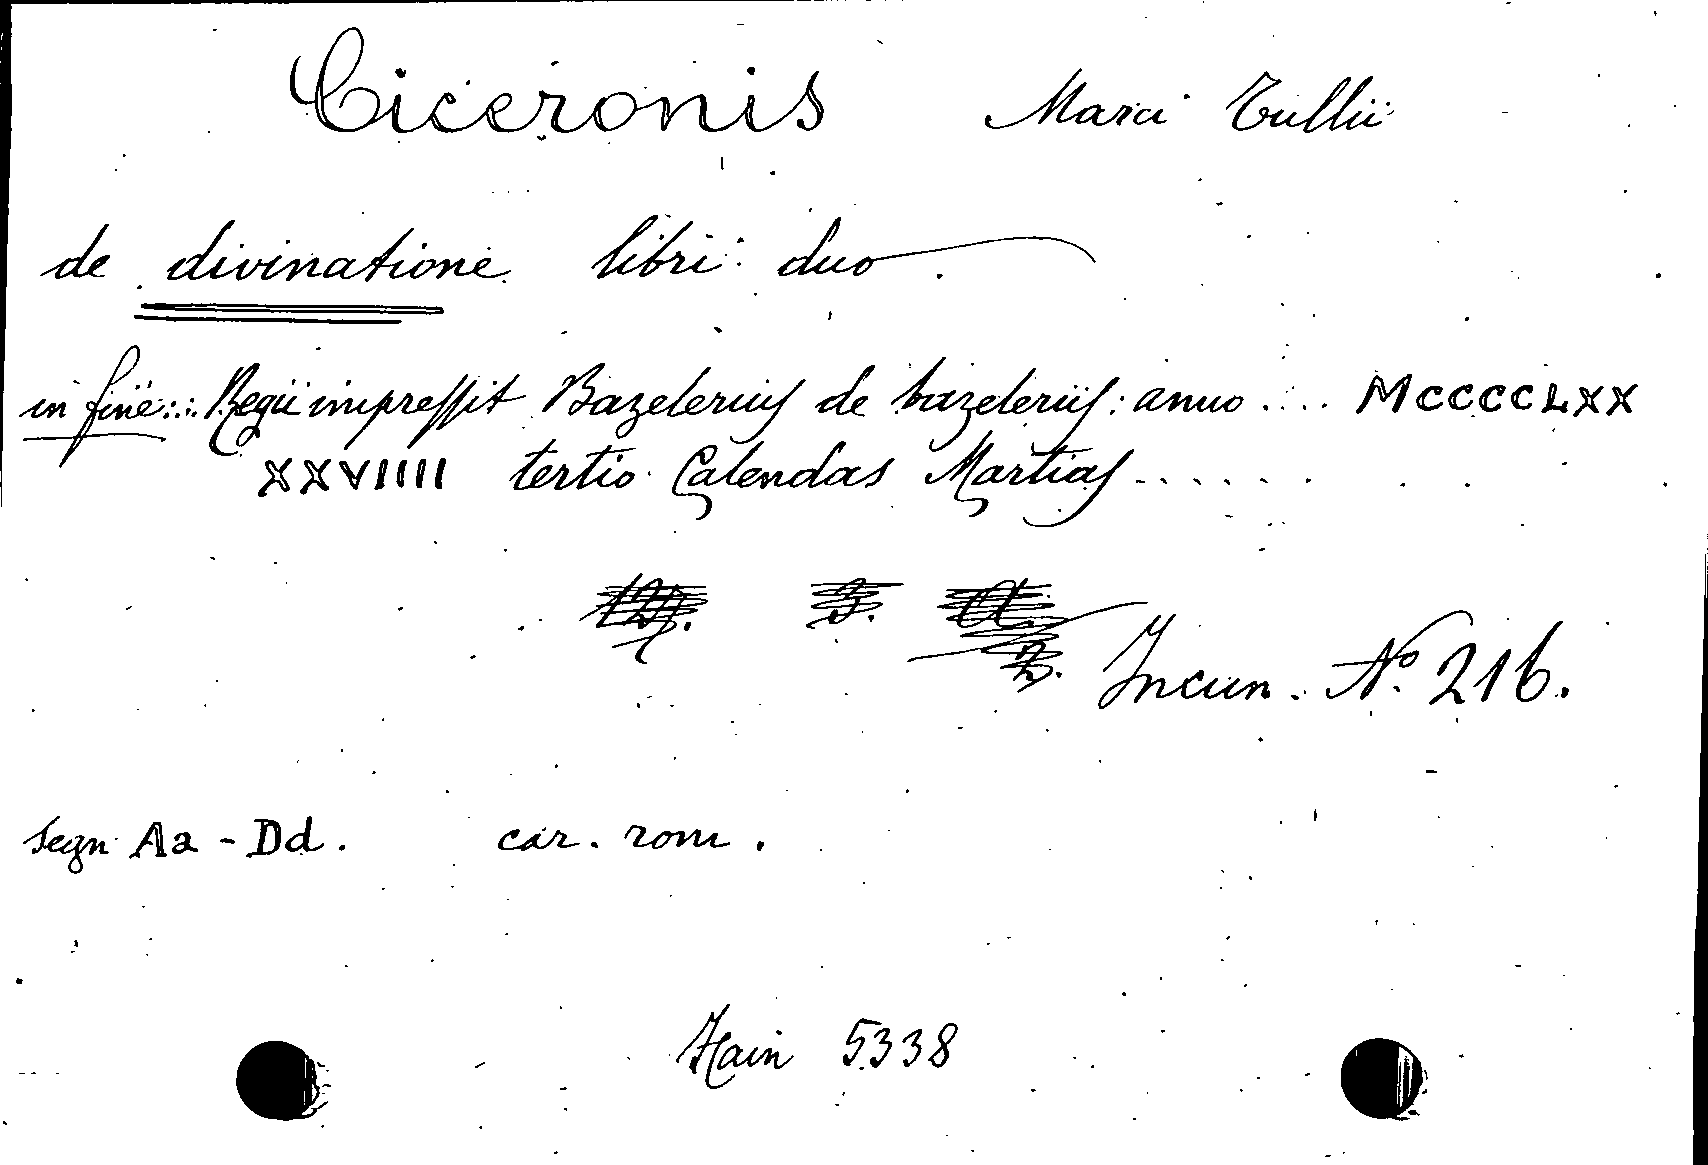 Ciceronis Marci Tullii
de divinatione libri duo.
in fine:: Regii impressit Bazelerius de bazeleriis: anno .... MCCCCLXX
XXVIIII tertio Calendas Martias ......
Incun. No. 216.
segn Aa - Dd. car. rom.
Hain 5338